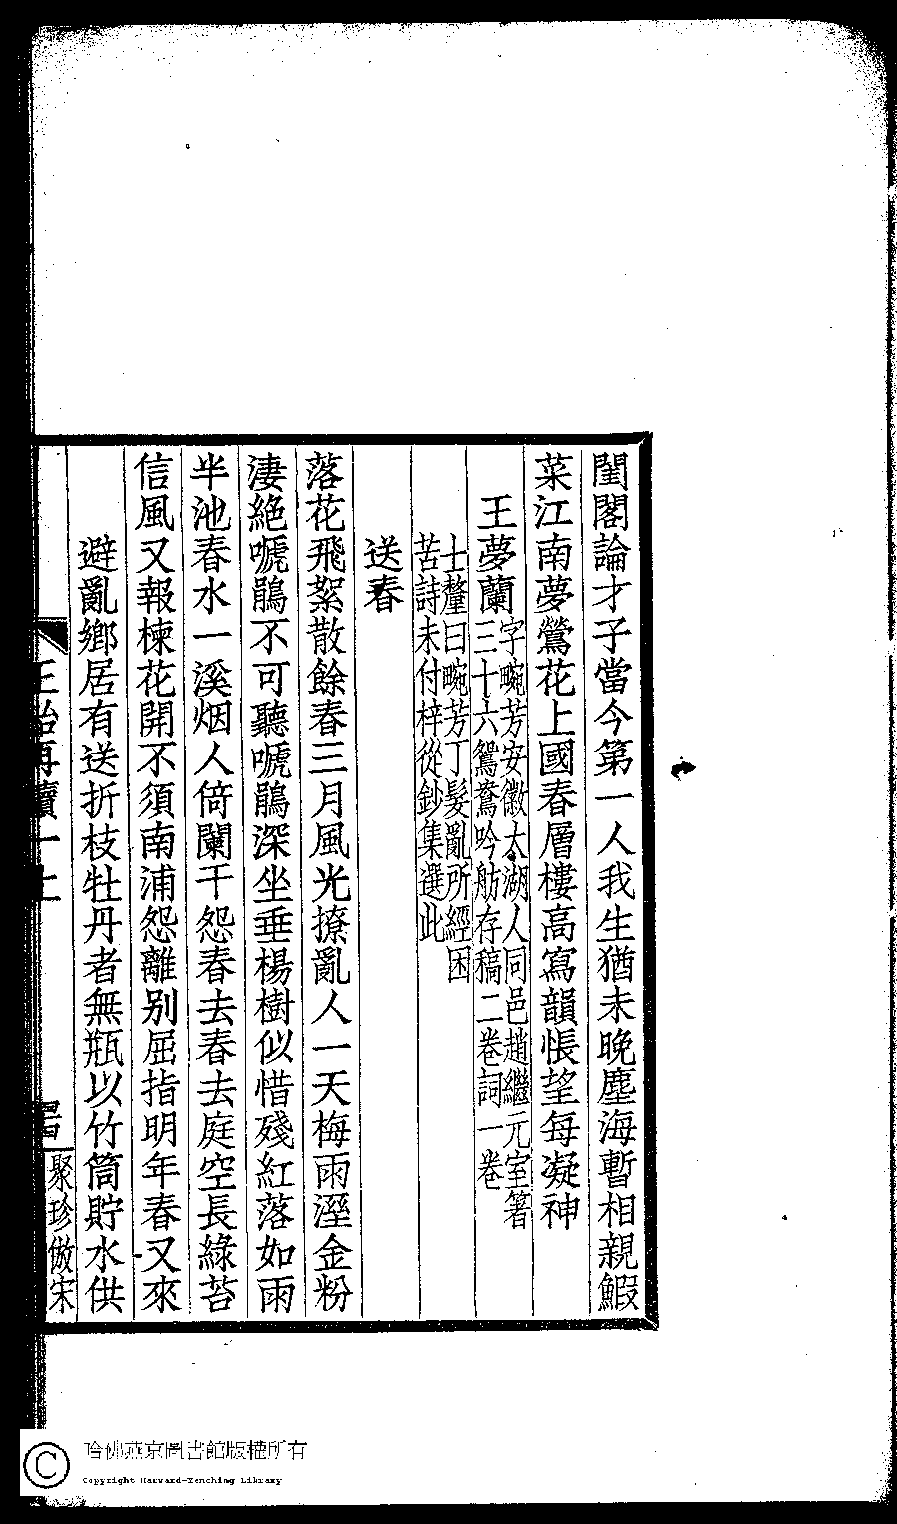 閨閣論才子當今第一人我生猶未晚塵海暫相親鰕
菜江南夢鶯花上國春層樓高寫韻悵望每凝神
王夢蘭
字畹芳安徽太湖人同邑趙繼元室箸
三十六鴛鴦吟舫存稿二卷詞一卷
士釐曰畹芳丁髮亂所經困
苦詩未付梓從鈔集選此
送春
落花飛絮散餘春三月風光撩亂人一天梅雨溼金粉
淒絕嗁鵑不可聽嗁鵑深坐垂楊樹似惜殘紅落如雨
半池春水一溪烟人倚闌干怨春去春去庭空長綠苔
信風又報楝花開不須南浦怨離別屈指明年春又來
避亂鄉居有送折枝牡丹者無瓶以竹筒貯水供
再續一上
聚珍倣宋
哈佛燕京圖書館版權所有
Copyright Harvard-Yenching Library